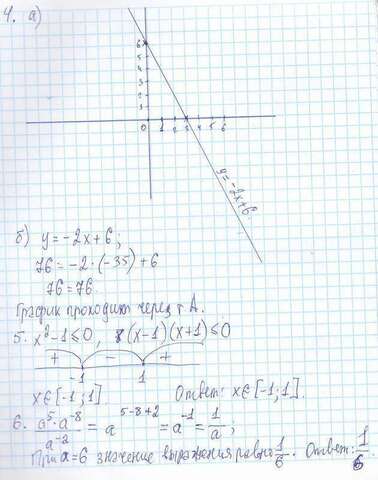 4. а)
6
5
4
3
2
1
0 1 2 3 4 5 6
y=-2x+6
б) y=-2x+6;
76=-2·(-35)+6
76=76.
График проходит через т А.
5. x²-1≤0, (x-1)(x+1)≤0
+ - +
-1 1
x∈[-1;1] Ответ: x∈[-1;1].
6. a⁵·a⁻⁸/a⁻² = a⁵⁻⁸⁺² = a⁻¹ = 1/a;
При a=6 значение выражения равно 1/6. Ответ: 1/6.